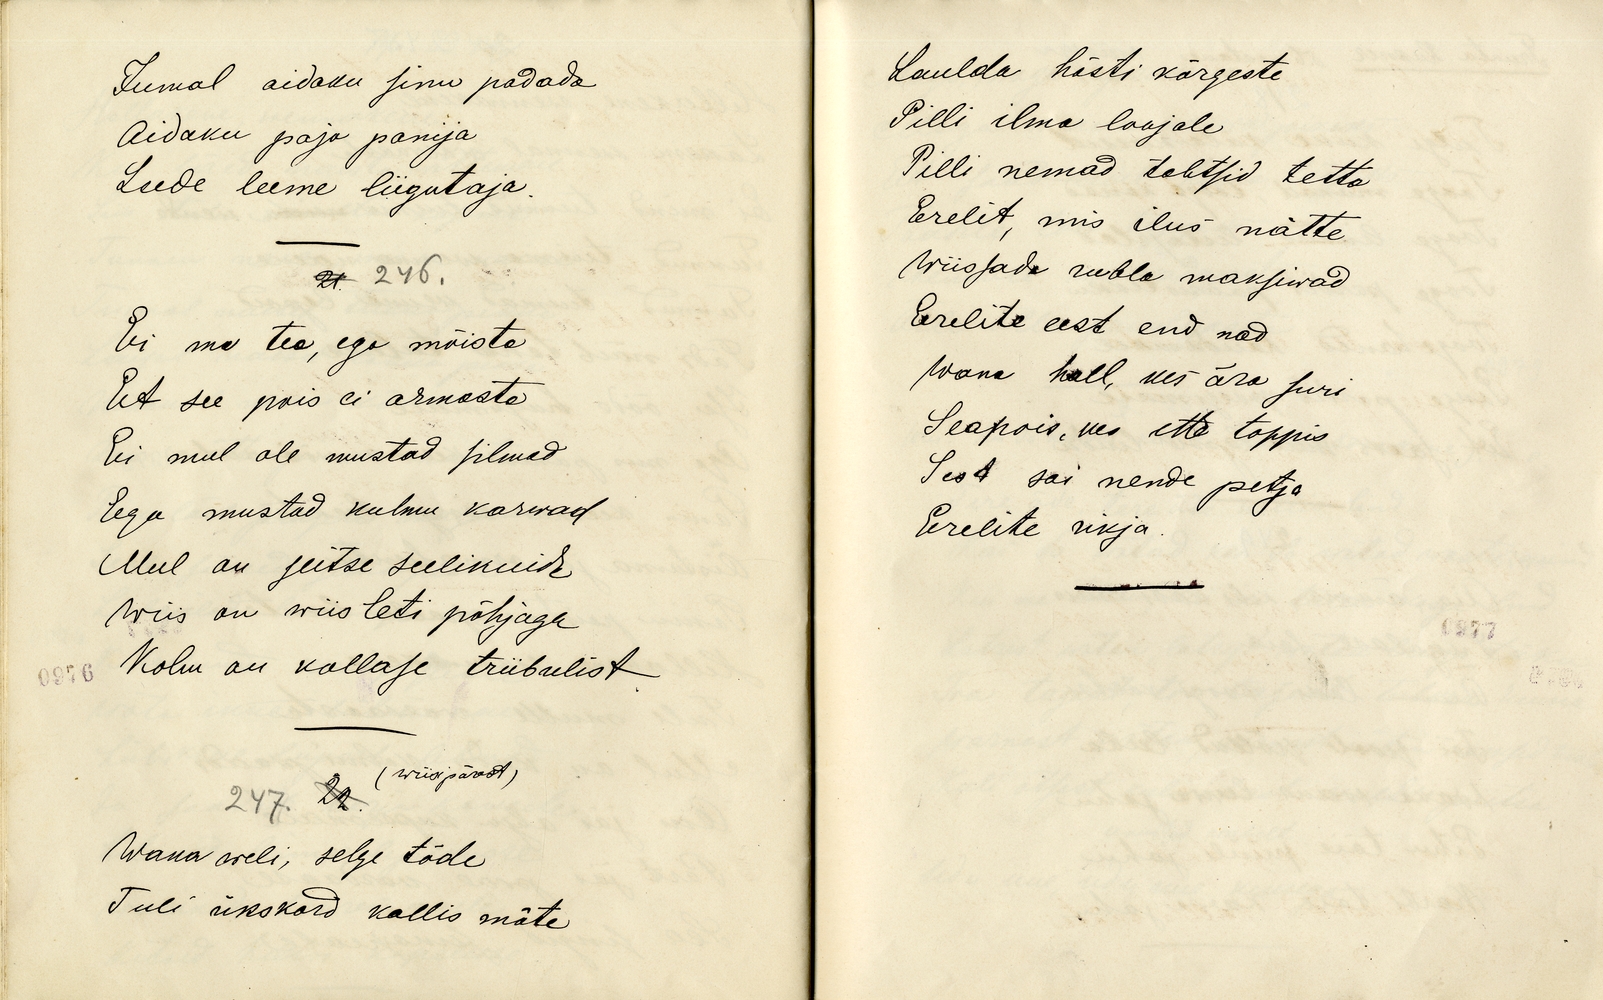 Jumal aidaku sinu padada
Aidaku paja panija
Leede leeme liigutaja.
21. 246.
Ei ma tea, ega mõista
Et see pois ei armasta
Ei mul ole mustad silmad
Ega mustad kulmu karwad
Mul on seitse seelikuida
Wiis on wiisleti põhjaga
Kolm on kollase triibulist
0976
(wiisipärast)
247. 22.
Wana weli, selge tõde
Tuli ükskord kallis mõte
Laulda hästi kõrgeste
Pilli ilma loojale
Pilli nemad tahtsid tetta
Erelit, mis ilus nätte
Wiissada rubla maksiwad
Erelite eest end nad
Wana hall, kes ära suri
Seapois, kes ette toppis
Sest sai nende petja
Erelite rikja.
0977